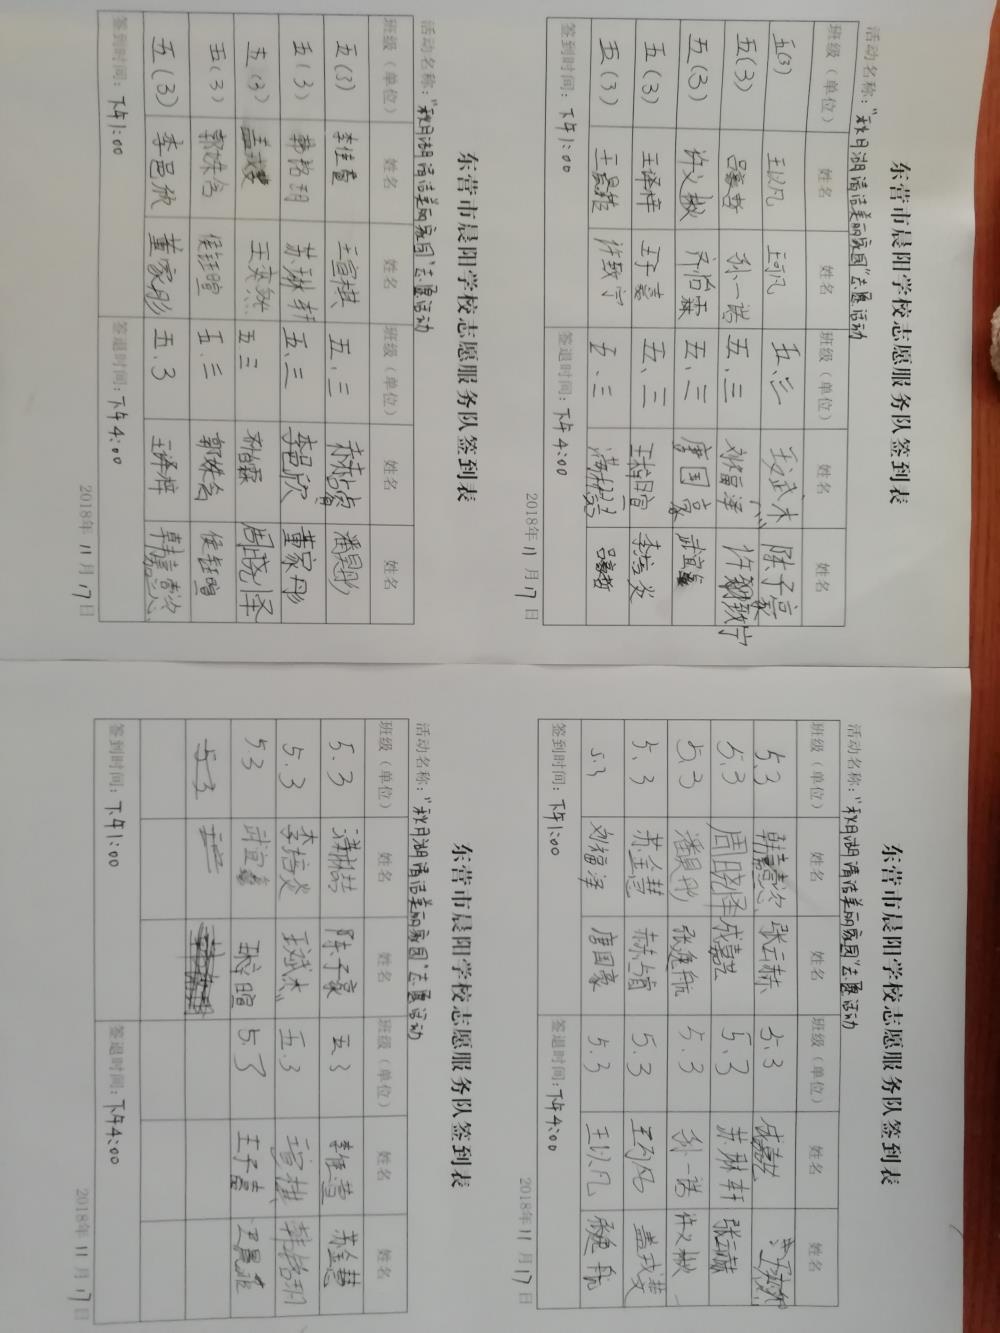 东营市晨阳学校志愿服务队签到表
2018年11月17日
活动名称：“秋月湖清洁美丽家园”志愿活动
班级（单位） 姓名 姓名 班级（单位） 姓名 姓名
五(3) 王以凡 王可凡 五、三 陈子豪
五(3) 吕豪哲 孙一诺 五、三 刘福泽 许致宁
五(3) 许文椒 齐怡霖 五、三 唐国豪 武宜鑫
五(3) 王译梓 王子嘉 五、三 李培炎
五(3) 王晨维 许致宁 五、三 吕豪哲
签到时间：下午1:00 签退时间：下午4:00
东营市晨阳学校志愿服务队签到表
2018年11月17日
活动名称：“秋月湖清洁美丽家园”志愿活动
班级（单位） 姓名 姓名 班级（单位） 姓名 姓名
五(3) 李佳萱 王宣棋 五、三 赫占喆 潘昱彤
五(3) 韩铭玥 苏琳轩 五、三 李邑欣 董家彤
五(3) 王奕然 五三 周晓怿
五(3) 郭姝含 侯钰暄 五、三 郭姝含 侯钰暄
五(3) 李邑欣 董家彤 五、3 王译梓
签到时间：下午1:00 签退时间：下午4:00
东营市晨阳学校志愿服务队签到表
2018年11月17日
活动名称：“秋月湖清洁美丽家园”志愿活动
班级（单位） 姓名 姓名 班级（单位） 姓名 姓名
5.3 张云赫 5.3 成嘉艺
5.3 周晓怿 成嘉艺 5.3 苏琳轩 张云赫
5.3 潘昱彤 张逸航 5.3 孙一诺 许文椒
5.3 苏金慧 5.3 王可凡
5.3 刘福泽 唐国豪 5.3 王以凡
签到时间：下午1:00 签退时间：下午4:00
东营市晨阳学校志愿服务队签到表
2018年11月17日
活动名称：“秋月湖清洁美丽家园”志愿活动
班级（单位） 姓名 姓名 班级（单位） 姓名 姓名
5.3 陈子豪 五3 李佳萱 苏金慧
5.3 李培炎 五.3 王宣棋 韩铭玥
5.3 武宜鑫 5.3 王子嘉 王晨维
5.3
签到时间：下午1:00 签退时间：下午4:00